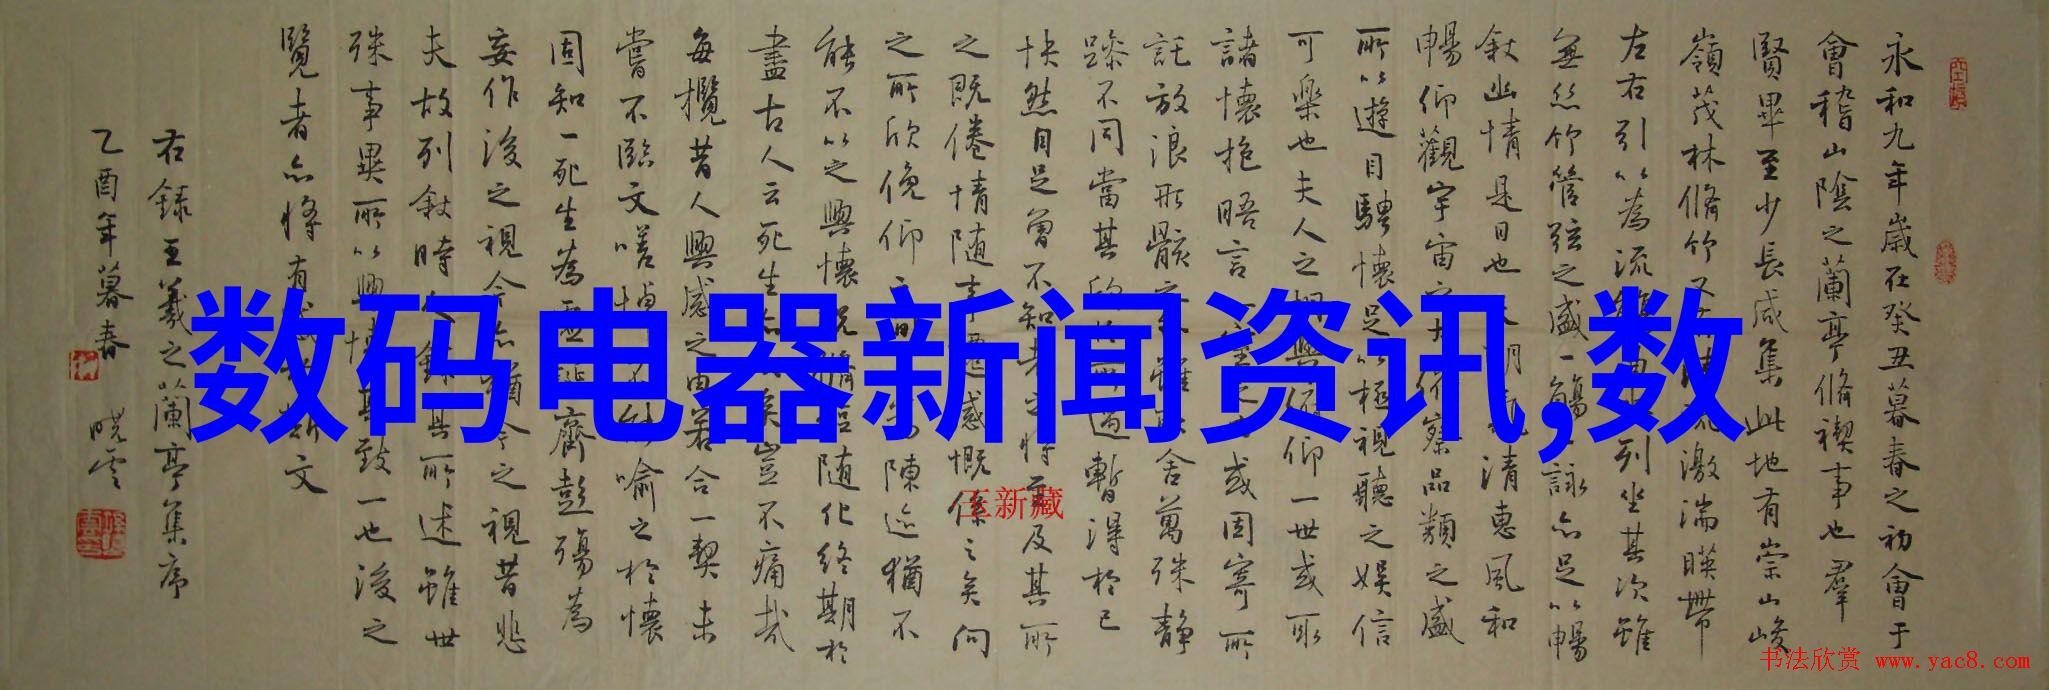 永和九年歲在癸丑暮春之初會于
會稽山陰之蘭亭脩禊事也羣
賢畢至少長咸集此地有崇山峻
嶺茂林脩竹又清流激湍暎帶
左右引以為流觴曲列坐其次雖
無絲竹管弦之盛一觴一詠亦足以暢
敘幽情是日也天朗氣清惠風和
暢仰觀宇宙之大俯察品類之盛
所以遊目騁懷足以極視聽之娛信
可樂也夫人之相與俯仰一世或取
諸懷抱晤言一室之內或因寄所
託放浪形骸之外雖取舍萬殊靜
躁不同當其欣於所遇暫得於己
快然自足曾不知老之將至及其所
之既倦情随事遷感慨係之矣向
之所欣俛仰之間為陳迹猶不
能不以之興懷況脩短随化終期於
盡古人云死生亦大矣豈不痛哉
每攬昔人興感之由若合一契未
嘗不臨文嗟悼不能喻之於懷
固知一死生為虛誕齊彭殤為
妄作後之視今亦猶今之視昔悲
夫故列敘時人錄其所述雖世
殊事異所以興懷其致一也後之
覽者亦將有感於斯文
右錄王羲之蘭亭集序
乙酉年暮春 曉雲
数码电器新闻资讯,数
王新藏
书法欣赏 www.yac8.com